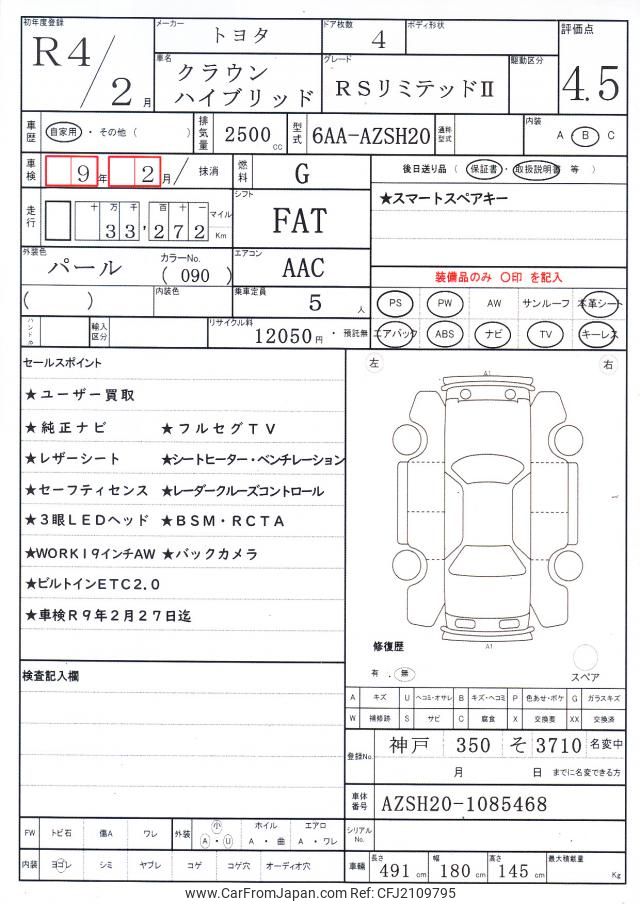 初年度登録
R4/2月
メーカー
トヨタ
ドア枚数
4
ボディ形状
評価点
4.5
車名
クラウン
ハイブリッド
グレード
RSリミテッドⅡ
駆動区分
車歴
自家用 ・ その他 ( )
排気量
2500cc
型式
6AA-AZSH20
通称型式
内装
A ・ B ・ C
車検
9年 2月 / 抹消
燃料
G
後日送り品 ( 保証書 ・ 取扱説明書 等 )
走行
十 万 千 百 十 一
33,272
マイル
Km
シフト
FAT
★スマートスペアキー
外装色
パール
カラーNo.
( 090 )
エアコン
AAC
装備品のみ 〇印 を記入
( )
内装色
乗車定員
5人
PS PW AW サンルーフ 本革シート
ハンドル
輸入区分
リサイクル料
12050円 ・ 預託無
エアバック ABS ナビ TV キーレス
セールスポイント
★ユーザー買取
★純正ナビ ★フルセグTV
★レザーシート ★シートヒーター・ベンチレーション
★セーフティセンス ★レーダークルーズコントロール
★3眼LEDヘッド ★BSM・RCTA
★WORK19インチAW ★バックカメラ
★ビルトインETC2.0
★車検R9年2月27日迄
左 右
A1
A1
修復歴
有 ・ 無
スペア
検査記入欄
A キズ U ヘコミ・オサレ B キズ・ヘコミ P 色あせ・ボケ G ガラスキズ
W 補修跡 S サビ C 腐食 X 交換要 XX 交換済
登録No.
神戸 350 そ 3710 名変中
月 日 までに名変できる方
車体番号
AZSH20-1085468
FW トビ石 傷A ワレ
外装 小 A ・ U
ホイル A ・ 曲
エアロ A ・ ワレ
シリアルNo.
内装 ヨゴレ シミ ヤブレ コゲ コゲ穴 オーディオ穴
車輌 長さ 491cm 幅 180cm 高さ 145cm 最大積載量 Kg
www.CarFromJapan.com Ref: CFJ2109795